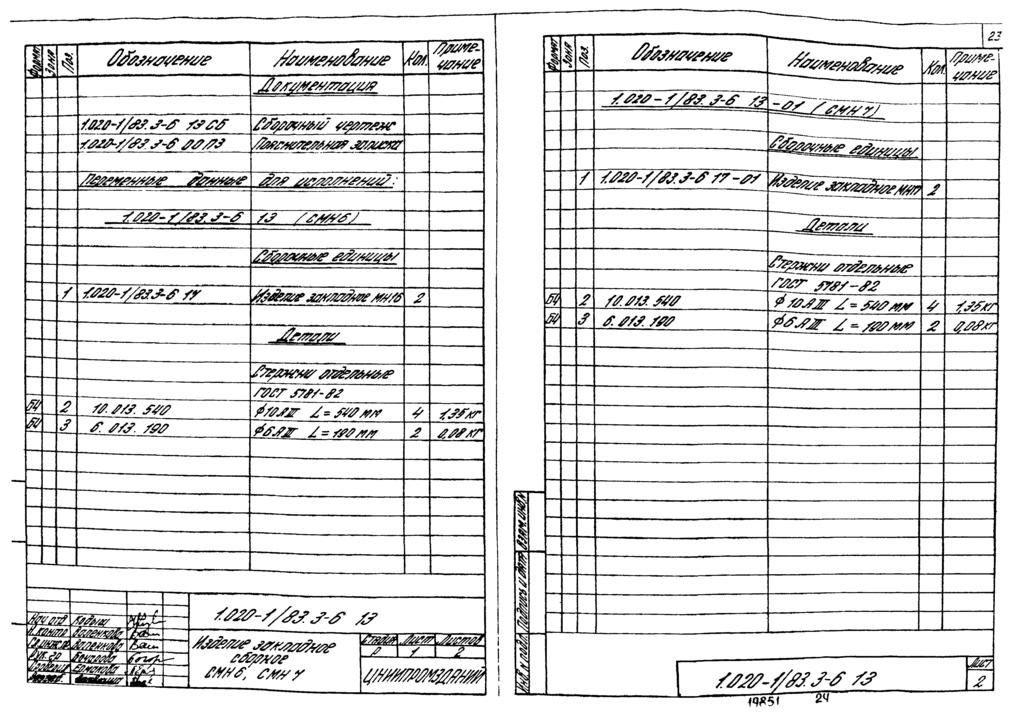 Формат Зона Поз. Обозначение Наименование Кол. Приме-чание
Документация
1.020-1/83.3-6 13 СБ Сборочный чертеж
1.020-1/83.3-6 00 ПЗ Пояснительная записка
Переменные данные для исполнений:
1.020-1/83.3-6 13 (СМН6)
Сборочные единицы
1 1.020-1/83.3-6 17 Изделие закладное МН16 2
Детали
Стержни отдельные
ГОСТ 5781-82
БЧ 2 10.013.540 ф10АIII L=540 мм 4 1,35 кг
БЧ 3 6.013.190 ф6АIII L=190 мм 2 0,08 кг
1.020-1/83.3-6 13
Нач. отд. Кодыш
Н. контр. Валенкова
Гл. инж. Валенкова
Рук. гр.
Ермакова
Изделие закладное
сборное
СМН6, СМН7
Стадия Лист Листов
Р 1 2
ЦНИИПРОМЗДАНИЙ
23
Формат Зона Поз. Обозначение Наименование Кол. Приме-чание
1.020-1/83.3-6 13-01 (СМН7)
Сборочные единицы
1 1.020-1/83.3-6 17-01 Изделие закладное МН17 2
Детали
Стержни отдельные
ГОСТ 5781-82
БЧ 2 10.013.540 ф10АIII L=540 мм 4 1,35 кг
БЧ 3 6.013.190 ф6АIII L=190 мм 2 0,08 кг
Инв. № подл. Подпись и дата Взам. инв. №
1.020-1/83.3-6 13
Лист
2
19851 24